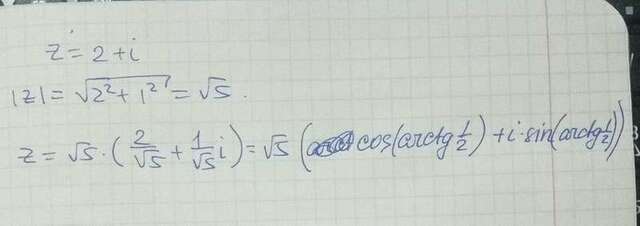 z = 2 + i
|z| = √(2² + 1²) = √5.
z = √5 · (2/√5 + 1/√5 i) = √5 (cos(arctg 1/2) + i · sin(arctg 1/2))